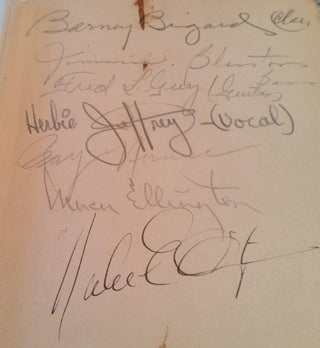 Barney Bigard Clar.
Jimmie Blanton Bass
Fred L. Guy (Guitar)
Herbie Jeffrey - (vocal)
Ray Nance
Mercer Ellington